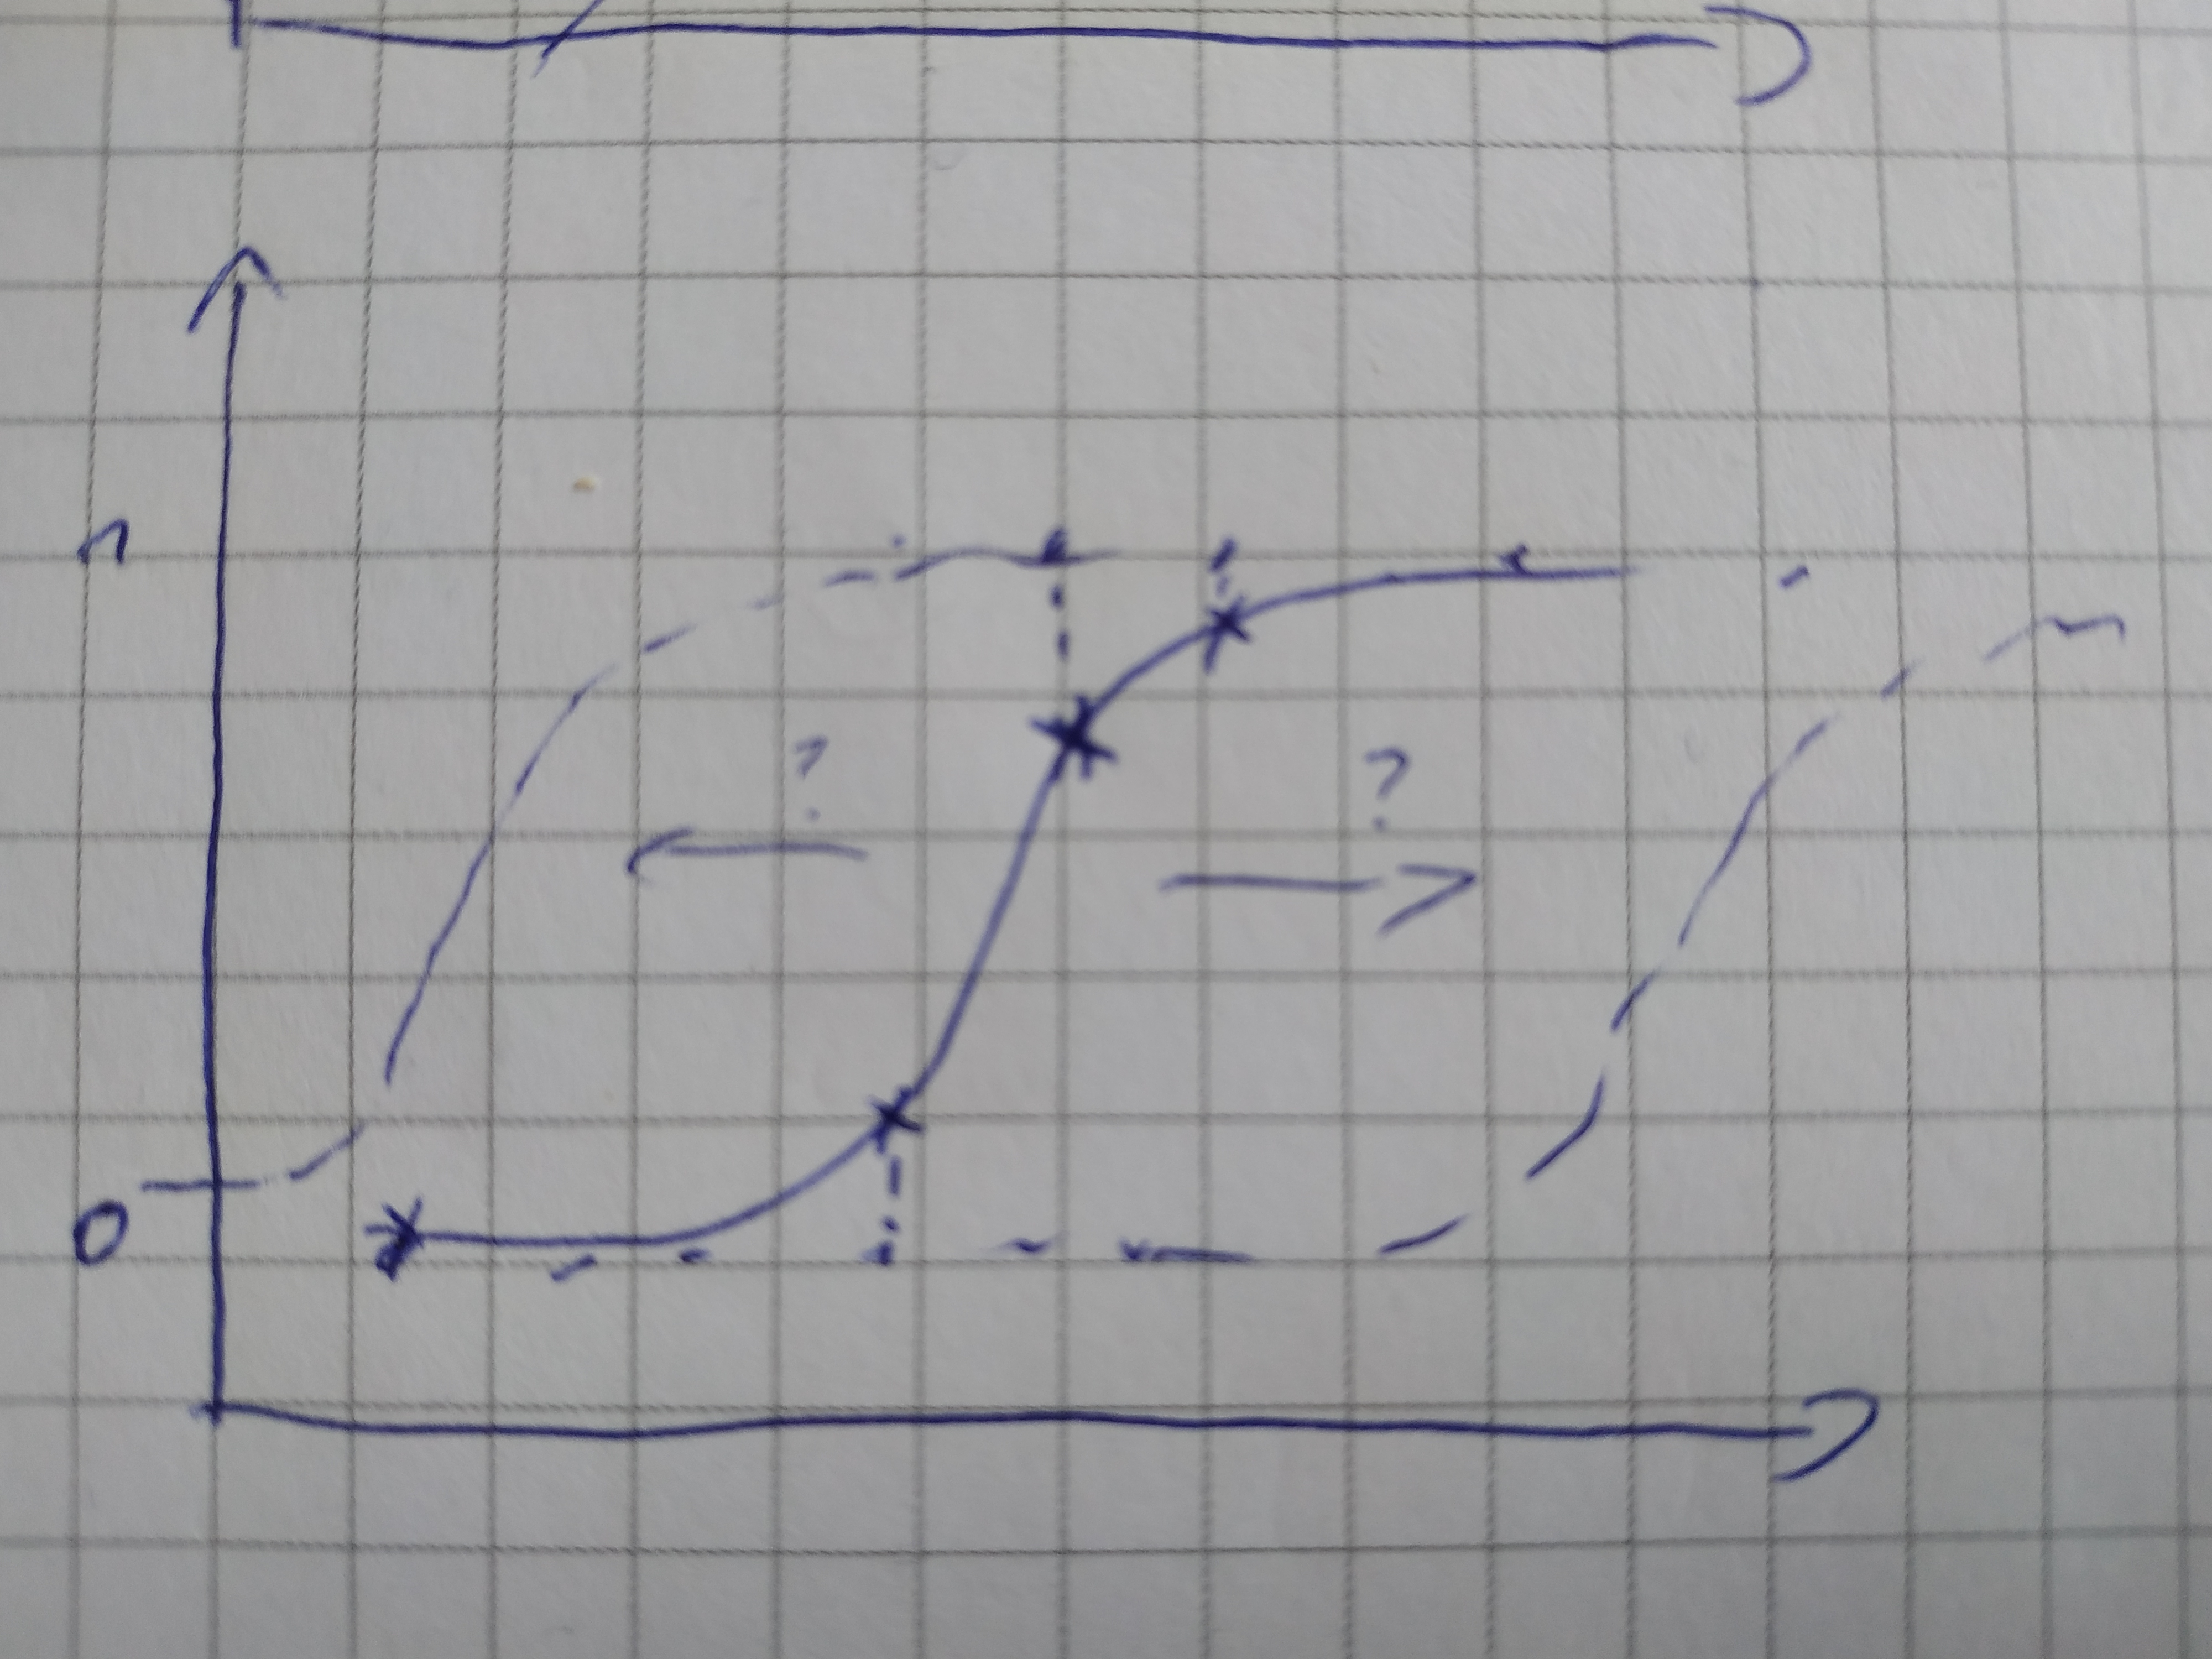 1
? ?
0